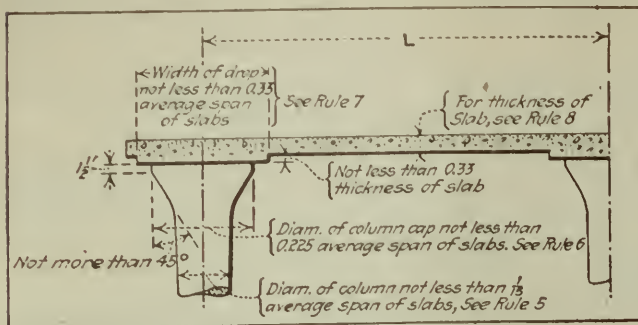 L
Width of drop
not less than 0.33
average span
of slabs
See Rule 7
For thickness of
Slab, see Rule 8
1½"
Not less than 0.33
thickness of slab
Diam. of column cap not less than
0.225 average span of slabs. See Rule 6
Not more than 45°
Diam. of column not less than 1/13
average span of slabs, See Rule 5